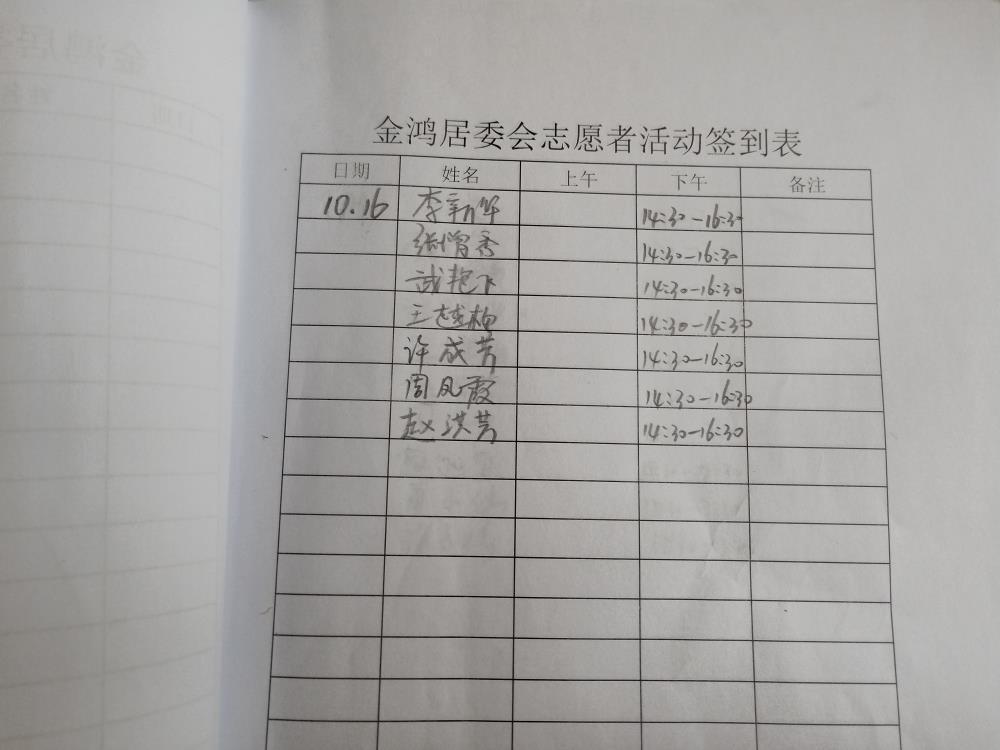 金鸿居委会志愿者活动签到表
日期 姓名 上午 下午 备注
10.16 李新华 14:30-16:30
张增秀 14:30-16:30
武艳飞 14:30-16:30
王越柏 14:30-16:30
许成芳 14:30-16:30
周凤霞 14:30-16:30
赵洪芳 14:30-16:30